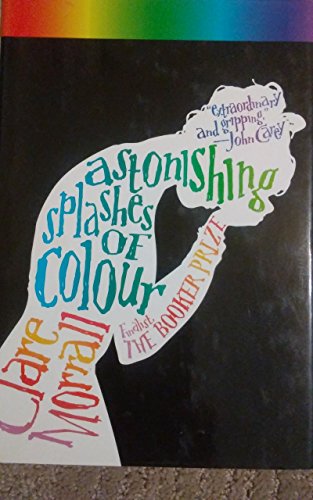 "extraordinary
and gripping"
—John Carey
astonishing
splashes
of
colour
Finalist,
THE BOOKER PRIZE
Clare
Morrall